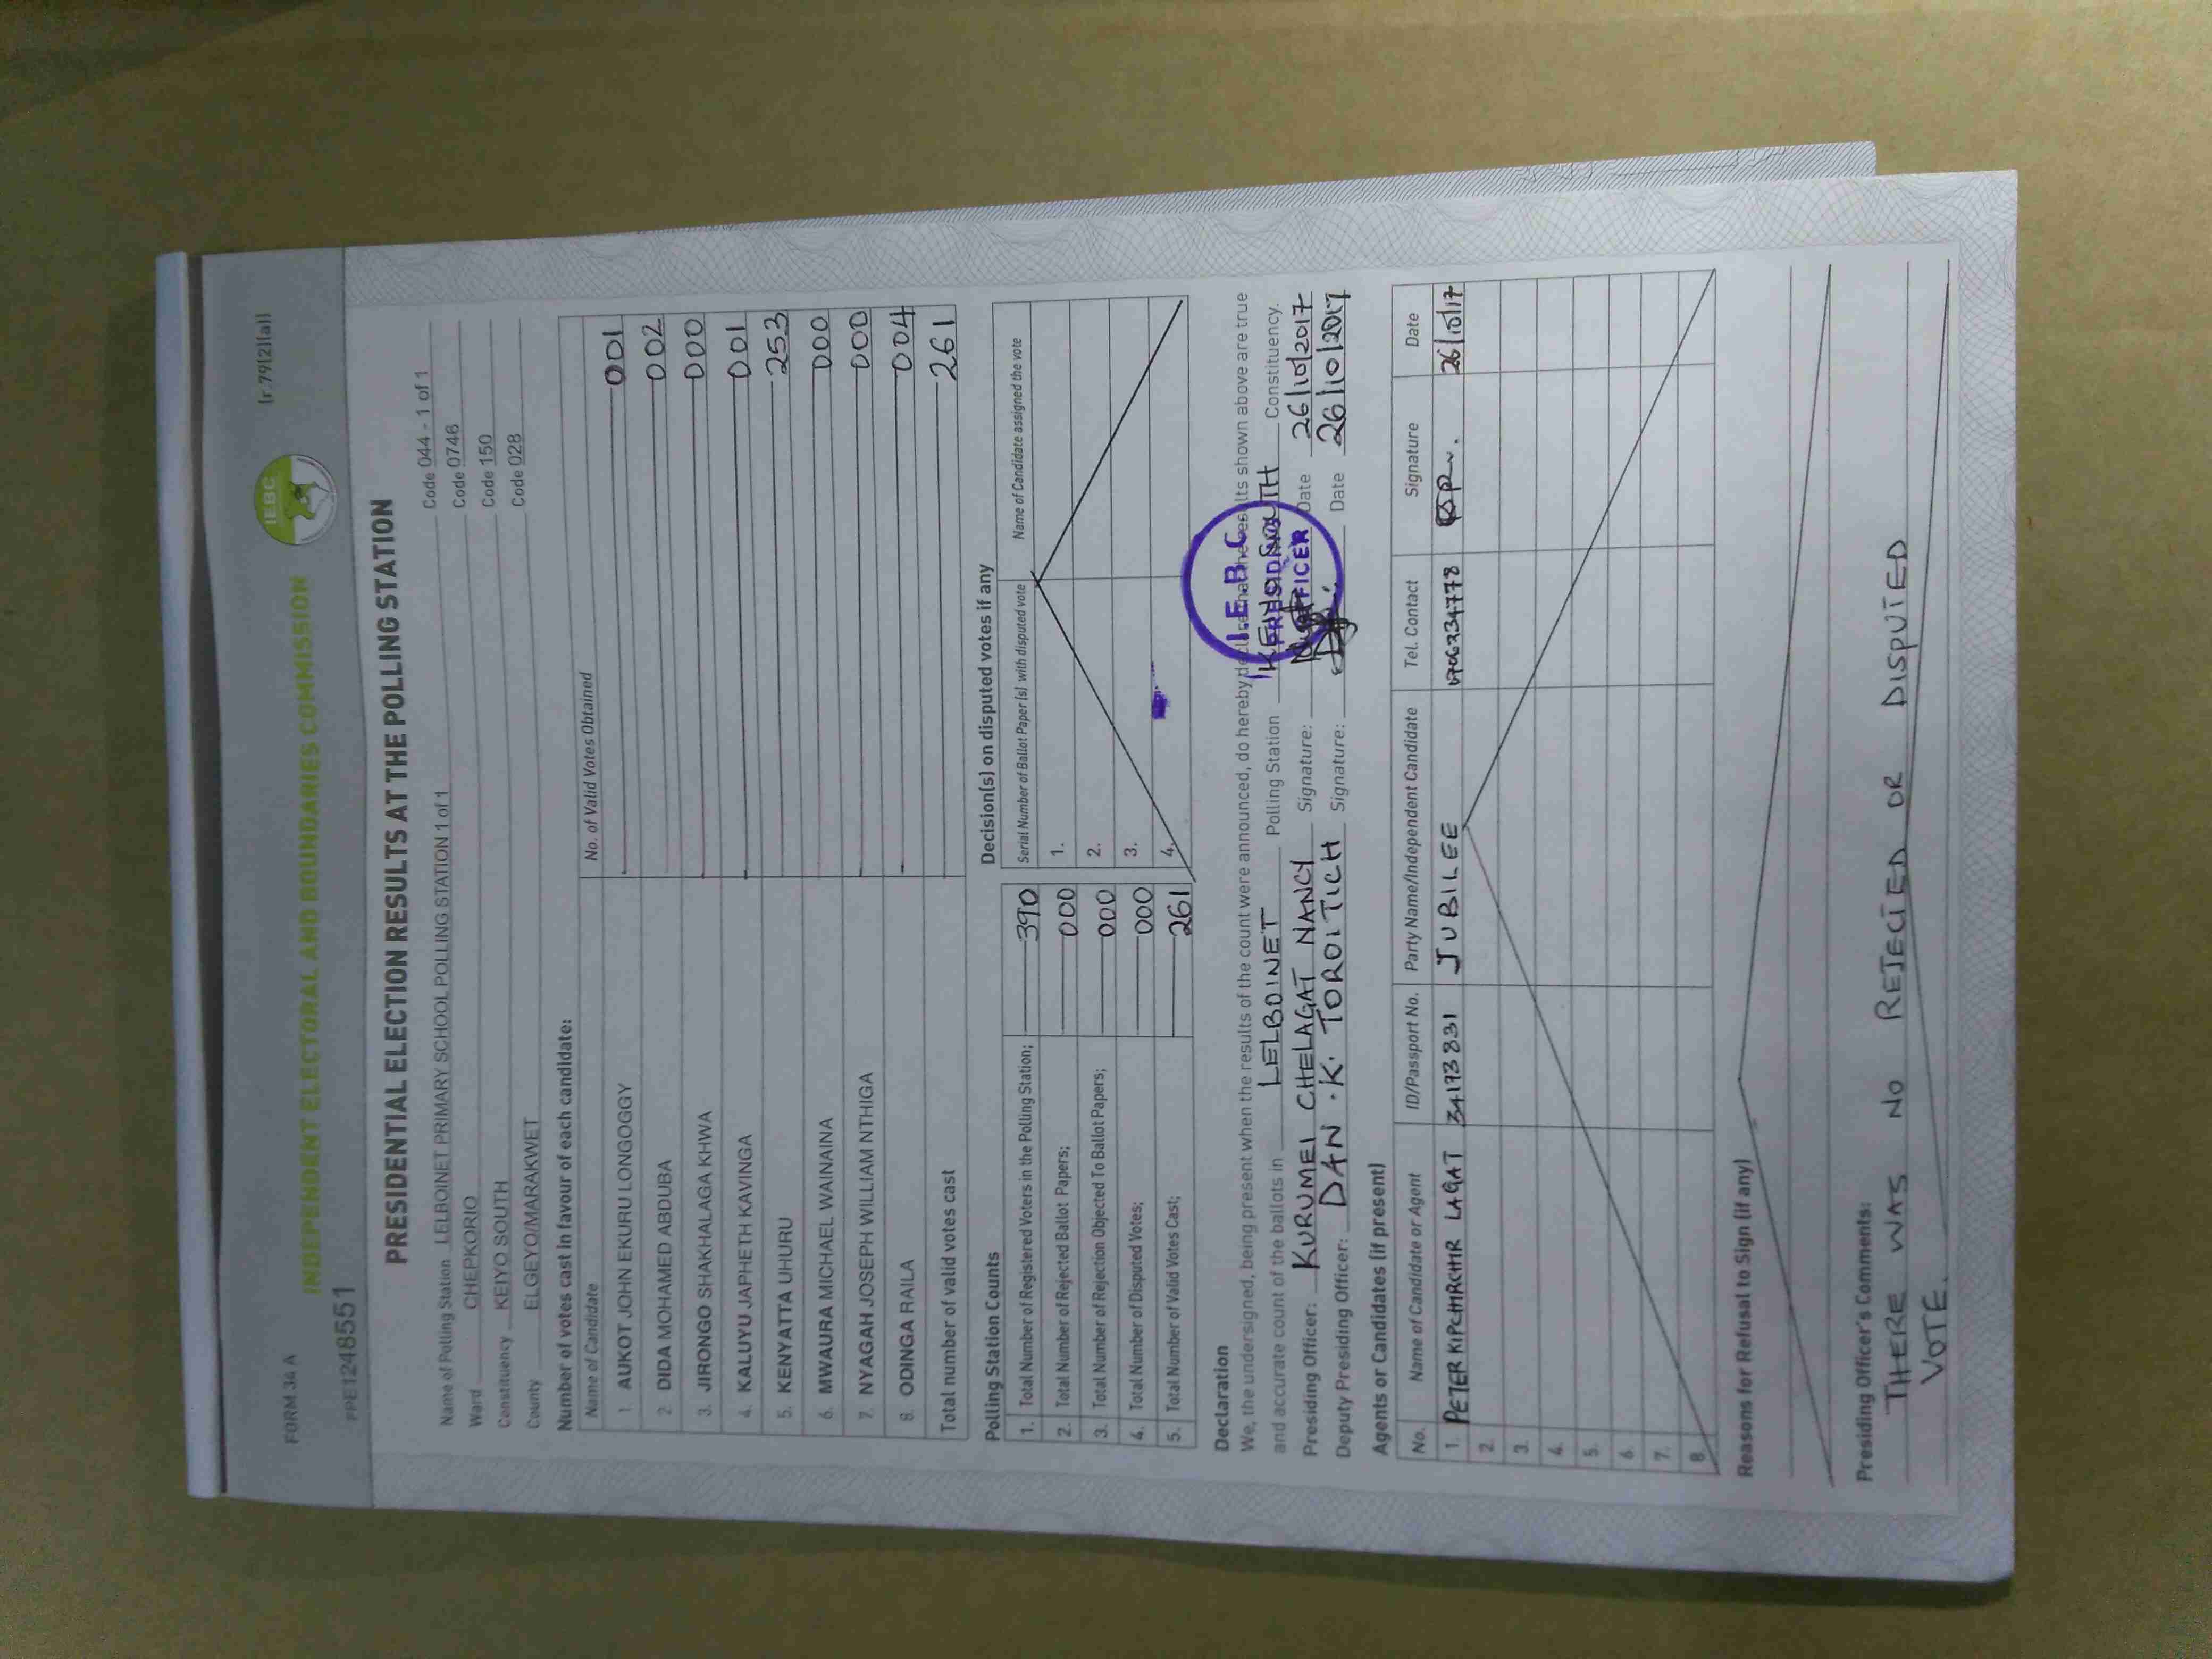 FORM 34 A
INDEPENDENT ELECTORAL AND BOUNDARIES COMMISSION
IEBC
(r 79(2)(a))
PPE1248551
PRESIDENTIAL ELECTION RESULTS AT THE POLLING STATION
Name of Polling Station LELBOINET PRIMARY SCHOOL POLLING STATION 1 of 1 Code 044 - 1 of 1
Ward CHEPKORIO Code 0746
Constituency KEIYO SOUTH Code 150
County ELGEYO/MARAKWET Code 028
Number of votes cast in favour of each candidate:
Name of Candidate No. of Valid Votes Obtained
1. AUKOT JOHN EKURU LONGOGGY 001
2 DIDA MOHAMED ABDUBA 002
3. JIRONGO SHAKHALAGA KHWA 000
4. KALUYU JAPHETH KAVINGA 001
5. KENYATTA UHURU 253
6. MWAURA MICHAEL WAINAINA 000
7. NYAGAH JOSEPH WILLIAM NTHIGA 000
8. ODINGA RAILA 004
Total number of valid votes cast 261
Polling Station Counts
1. Total Number of Registered Voters in the Polling Station; 390
2. Total Number of Rejected Ballot Papers; 000
3. Total Number of Rejection Objected To Ballot Papers; 000
4. Total Number of Disputed Votes; 000
5. Total Number of Valid Votes Cast; 261
Decision(s) on disputed votes if any
Serial Number of Ballot Paper (s) with disputed vote Name of Candidate assigned the vote
1.
2.
3.
4.
Declaration
We, the undersigned, being present when the results of the count were announced, do hereby declare that the results shown above are true
and accurate count of the ballots in LELBOINET Polling Station KEIYO SOUTH Constituency.
Presiding Officer: KURUMEI CHELAGAT NANCY Signature: Date 26/10/2017
Deputy Presiding Officer: DAN . K. TOROITICH Signature: Date 26/10/2017
I.E.B.C
PRESIDING
OFFICER
Agents or Candidates (if present)
No. Name of Candidate or Agent ID/Passport No. Party Name/Independent Candidate Tel. Contact Signature Date
1. PETER LAGAT 34173831 JUBILEE 0706234778 26/10/17
2.
3.
4.
5.
6.
7.
8.
Reasons for Refusal to Sign (if any)
Presiding Officer's Comments:
THERE WAS NO REJECTED OR DISPUTED
VOTE.